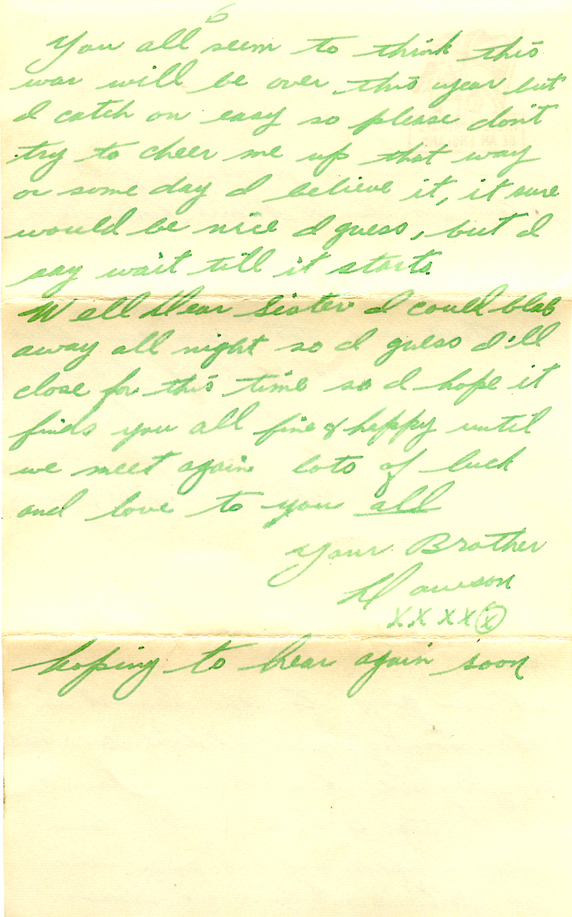 6
You all seem to think this
war will be over this year but
I catch on easy so please don't
try to cheer me up that way
or some day I believe it, it sure
would be nice I guess, but I
say wait till it starts.
Well Dear Sister I could blab
away all night so I guess I'll
close for this time so I hope it
finds you all fine & happy until
we meet again lots of luck
and love to you all
Your Brother
Dawson
XXXXX
hoping to hear again soon